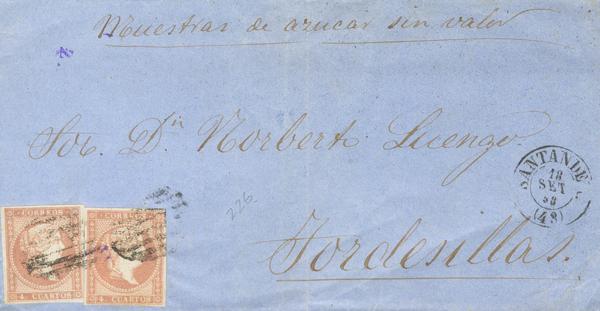 Muestras de azucar sin valor
Sor. Dn. Norberto Luengo
Tordesillas.
226
SANTANDE
18
SET
58
(48)
CORREOS
4 CUARTOS
CORREOS
4 CUARTOS